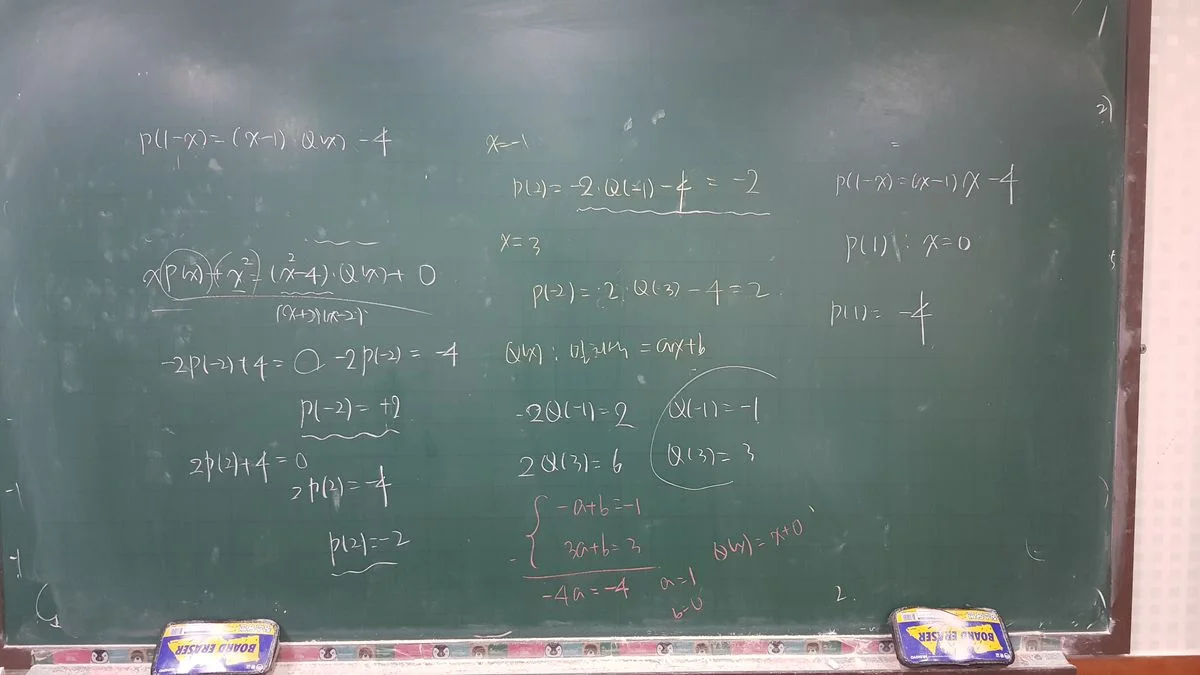 P(1-x)=(x-1)·Q(x)-4
xP(x)+x²=(x²-4)·Q(x)+0
(x+2)(x-2)
-2P(-2)+4=0 -2P(-2)=-4
P(-2)=+2
2P(2)+4=0
2P(2)=-4
P(2)=-2
x=-1
P(2)=-2·Q(-1)-4=-2
x=3
P(-2)=2·Q(3)-4=2
Q(x): =ax+b
-2Q(-1)=2 Q(-1)=-1
2Q(3)=6 Q(3)=3
-a+b=-1
3a+b=3
-4a=-4
a=1
b=0
Q(x)=x+0
=
P(1-x)=(x-1)x-4
P(1): x=0
P(1)=-4
2)
2.
BOARD ERASER
BOARD ERASER